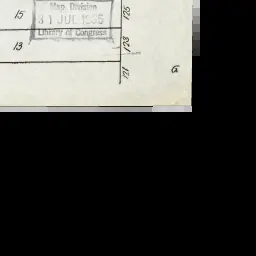 15
Map Division
31 JUL 1955
Library of Congress
126
13
123
121
G